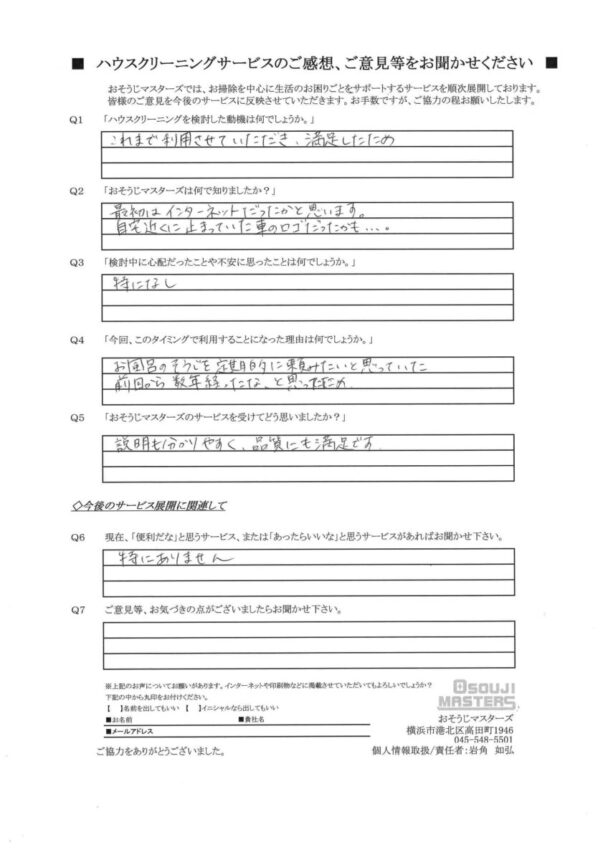 ■ ハウスクリーニングサービスのご感想、ご意見等をお聞かせください ■
おそうじマスターズでは、お掃除を中心に生活のお困りごとをサポートするサービスを順次展開しております。
皆様のご意見を今後のサービスに反映させていただきます。お手数ですが、ご協力の程お願いしたします。
Q1 「ハウスクリーニングを検討した動機は何でしょうか。」
これまで利用させていただき、満足したため
Q2 「おそうじマスターズは何で知りましたか？」
最初はインターネットだったかと思います。
自宅近くに止まっていた車のロゴだったかも....。
Q3 「検討中に心配だったことや不安に思ったことは何でしょうか。」
特になし
Q4 「今回、このタイミングで利用することになった理由は何でしょうか。」
お風呂のそうじを定期的に頼みたいと思っていた
前回から数年経ったな。と思ったため
Q5 「おそうじマスターズのサービスを受けてどう思いましたか？」
説明も分かりやすく、品質にも満足です
◇今後のサービス展開に関連して
Q6 現在、「便利だな」と思うサービス、または「あったらいいな」と思うサービスがあればお聞かせ下さい。
特にありません
Q7 ご意見等、お気づきの点がございましたらお聞かせ下さい。
※上記のお声についてお願いがあります。インターネットや印刷物などに掲載させていただいてもよろしいでしょうか？
下記の中から丸印をお付けください。
【 】名前を出してもいい 【 】イニシャルなら出してもいい
■お名前 ■貴社名
■メールアドレス
ご協力をありがとうございました。
OSOUJI
MASTERS
おそうじマスターズ
横浜市港北区高田町1946
045-548-5501
個人情報取扱/責任者：岩角 如弘